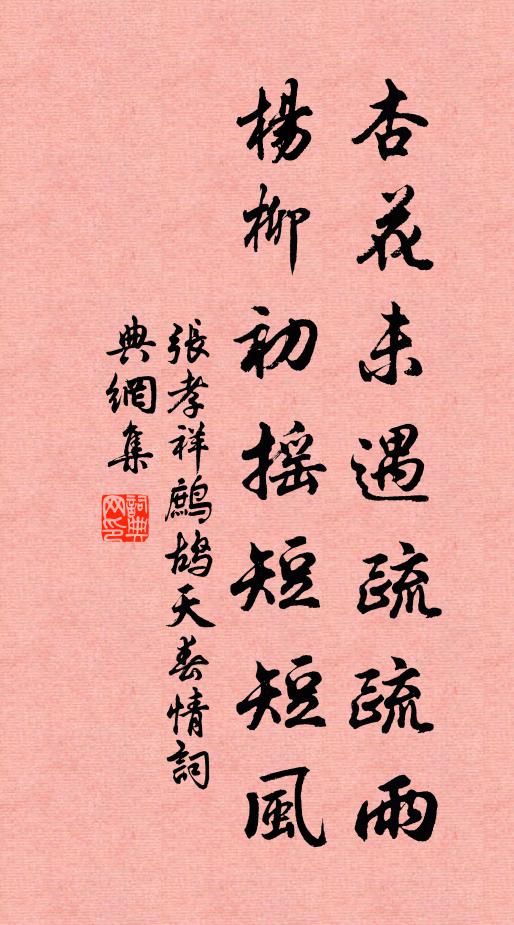 杏花未遇疏疏雨
楊柳初搖短短風
張孝祥鷓鴣天春情詞
典網集
詞典
网印